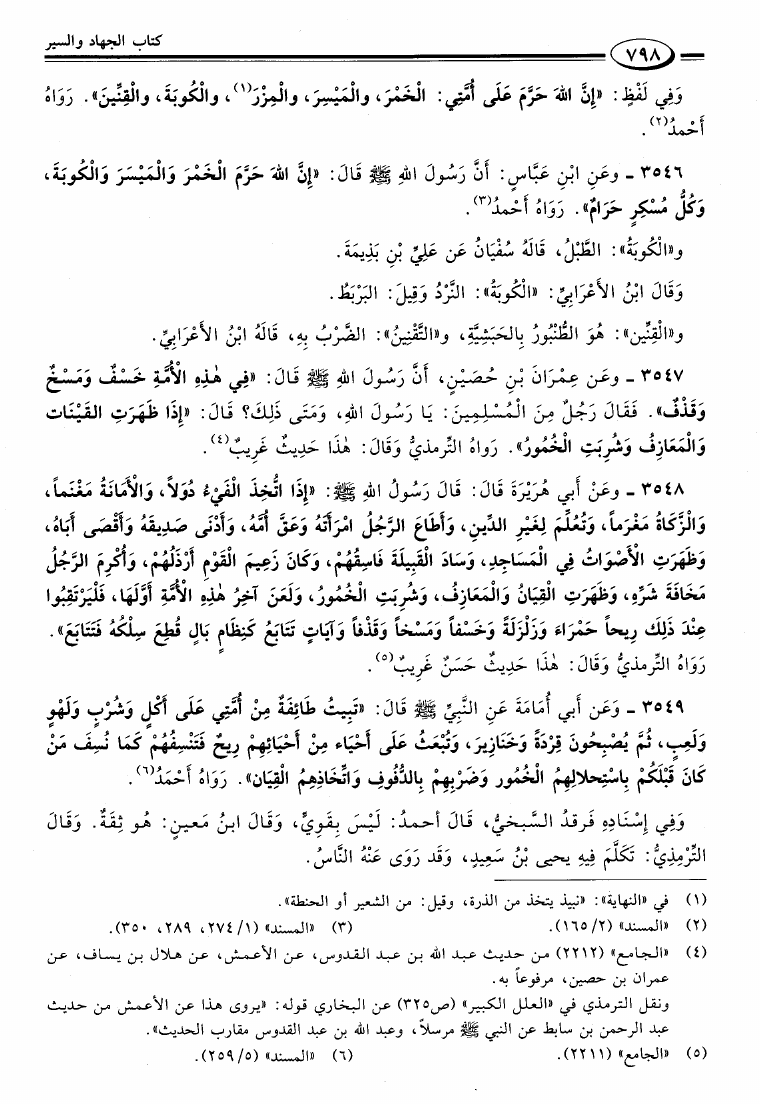 كتاب الجهاد والسير
٧٩٨
وَفِي لَفْظٍ: «إِنَّ اللهَ حَرَّمَ عَلَى أُمَّتِي: الْخَمْرَ، وَالْمَيْسِرَ، والْمِزْرَ(١)، والْكُوبَةَ، والْقِنِّينَ». رَوَاهُ
أَحْمدُ(٢).
٣٥٤٦ ـ وعَنِ ابْنِ عَبَّاسٍ: أَنَّ رَسُولَ اللهِ ﷺ قَالَ: «إِنَّ اللهَ حَرَّمَ الْخَمْرَ وَالْمَيْسَرَ وَالْكُوبَةَ،
وَكُلُّ مُسْكِرٍ حَرَامٌ». رَوَاهُ أَحْمَدُ(٣).
و«الْكُوبَةُ»: الطَّبْلُ، قَالَهُ سُفْيَانُ عَن عَلِيِّ بْنِ بَذِيمَةَ.
وَقَالَ ابْنُ الأَعْرَابِيِّ: «الْكُوبَةُ»: النَّرْدُ وَقِيلَ: البَرْبَطُ.
و«الْقِنِّين»: هُوَ الطُّنْبُورُ بِالحَبَشِيَّةِ، و«التَّقْنِينُ»: الضَّرْبُ بِهِ، قَالَهُ ابْنُ الأَعْرَابِيِّ.
٣٥٤٧ ـ وعَن عِمْرَانَ بْنِ حُصَيْنٍ، أَنَّ رَسُولَ اللهِ ﷺ قَالَ: «فِي هٰذِهِ الْأُمَّةِ خَسْفٌ وَمَسْخٌ
وَقَذْفٌ». فَقَالَ رَجُلٌ مِنَ الْمُسْلِمِينَ: يَا رَسُولَ اللهِ، وَمَتَى ذَلِكَ؟ قَالَ: «إِذَا ظَهَرَتِ القَيْنَات
وَالْمَعَازِفُ وَشُرِبَتِ الْخُمُورُ». رَواهُ التِّرمذيُّ وَقَالَ: هٰذَا حَدِيثٌ غَرِيبٌ(٤).
٣٥٤٨ ـ وعَنْ أَبِي هُرَيْرَةَ قَالَ: قَالَ رَسُولُ اللهِ ﷺ: «إِذَا اتُّخِذَ الْفَيْءُ دُوَلاً، وَالْأَمَانَةُ مَغْنَماً،
وَالزَّكَاةُ مَغْرَماً، وَتُعُلِّمَ لِغَيْرِ الدِّينِ، وَأَطَاعَ الرَّجُلُ امْرَأَتَهُ وَعَقَّ أُمَّهُ، وَأَدْنَى صَدِيقَهُ وَأَقْصَى أَبَاهُ،
وَظَهَرَتِ الْأَصْوَاتُ فِي الْمَسَاجِدِ، وَسَادَ القَبِيلَةَ فَاسِقُهُمْ، وَكَانَ زَعِيمَ الْقَوْمِ أَرْذَلُهُمْ، وَأُكْرِمَ الرَّجُلُ
مَخَافَةَ شَرِّهِ، وَظَهَرَتِ الْقِيَانُ وَالْمَعَازِفُ، وَشُرِبَتِ الْخُمُورُ، وَلَعَنَ آخِرُ هٰذِهِ الْأُمَّةِ أَوَّلَهَا، فَلْيَرْتَقِبُوا
عِنْدَ ذَلِكَ رِيحاً حَمْرَاءَ وَزَلْزَلَةً وَخَسْفاً وَمَسْخاً وَقَذْفاً وَآيَاتٍ تَتَابَعُ كَنِظَامٍ بَالٍ قُطِعَ سِلْكُهُ فَتَتَابَعَ».
رَوَاهُ التِّرمذيُّ وَقَالَ: هٰذَا حَدِيثٌ حَسَنٌ غَرِيبٌ(٥).
٣٥٤٩ ـ وَعَن أَبي أُمَامَةَ عَنِ النَّبِيِّ ﷺ قَالَ: «تَبِيتُ طَائِفَةٌ مِنْ أُمَّتِي عَلَى أَكْلٍ وَشُرْبٍ وَلَهْوٍ
وَلَعِبٍ، ثُمَّ يُصْبِحُونَ قِرْدَةً وَخَنَازِيرَ، وَتُبْعَثُ عَلَى أَحْيَاء مِنْ أَحْيَائِهِم رِيحٌ فَتَنْسِفُهُمْ كَمَا نُسِفَ مَنْ
كَانَ قَبْلَكُمْ بِاسْتِحلالِهِمُ الْخُمُور وَضَرْبِهِمْ بِالدُّفُوفِ وَاتِّخَاذِهِمُ الْقِيَان». رَوَاهُ أَحْمَدُ(٦).
وَفِي إِسْنَادِهِ فَرقدُ السَّبخيُّ، قَالَ أحمدُ: لَيْسَ بِقَوِيٍّ، وَقَالَ ابنُ مَعينٍ: هُو ثِقَةٌ. وَقَالَ
التِّرْمِذيُّ: تَكَلَّمَ فِيهِ يحيى بْنُ سَعِيدٍ، وَقَد رَوَى عَنْهُ النَّاسُ.
(١) في «النهاية»: «نبيذ يتخذ من الذرة، وقيل: من الشعير أو الحنطة».
(٢) «المسند» (٢/ ١٦٥). (٣) «المسند» (١/ ٢٧٤، ٢٨٩، ٣٥٠).
(٤) «الجامع» (٢٢١٢) من حديث عبد الله بن عبد القدوس، عن الأعمش، عن هلال بن يساف، عن
عمران بن حصين، مرفوعاً به.
ونقل الترمذي في «العلل الكبير» (ص٣٢٥) عن البخاري قوله: «يروى هذا عن الأعمش من حديث
عبد الرحمن بن سابط عن النبي ﷺ مرسلاً، وعبد الله بن عبد القدوس مقارب الحديث».
(٥) «الجامع» (٢٢١١). (٦) «المسند» (٥/ ٢٥٩).